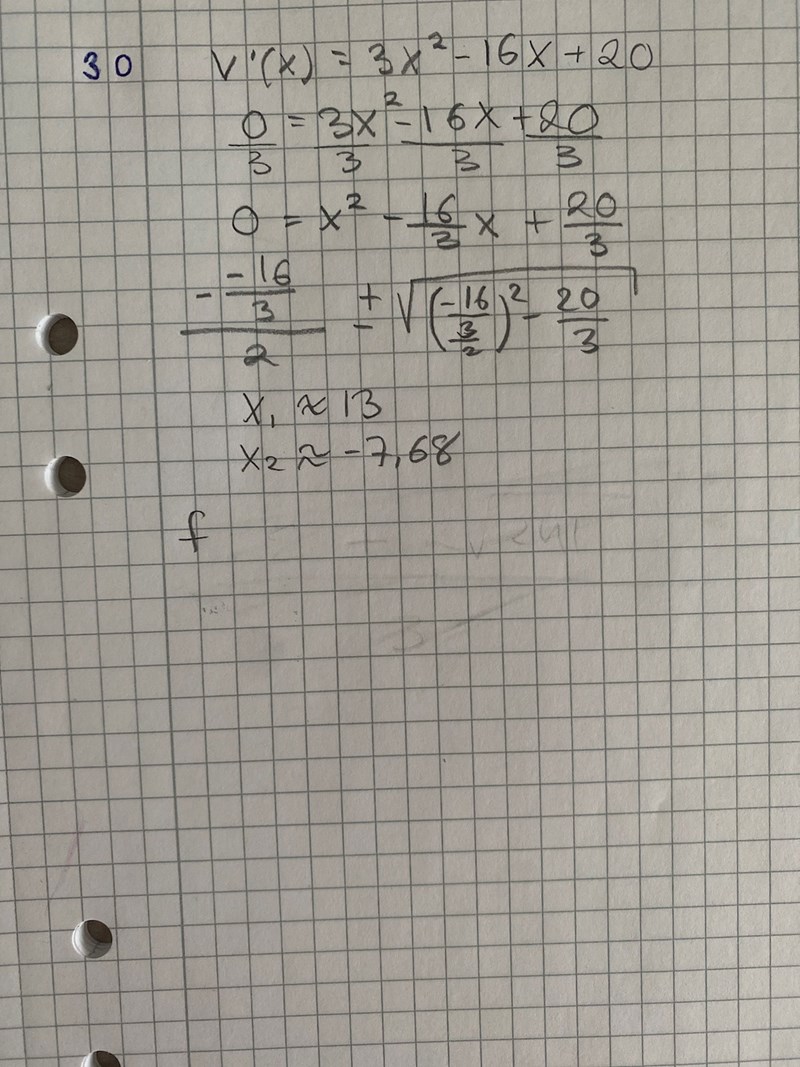 30 V'(x) = 3x² - 16x + 20
0/3 = 3x²/3 - 16x/3 + 20/3
0 = x² - 16/3 x + 20/3
- (-16/3)/2 ± √((-16/3/2)² - 20/3)
x₁ ≈ 13
x₂ ≈ -7,68
f